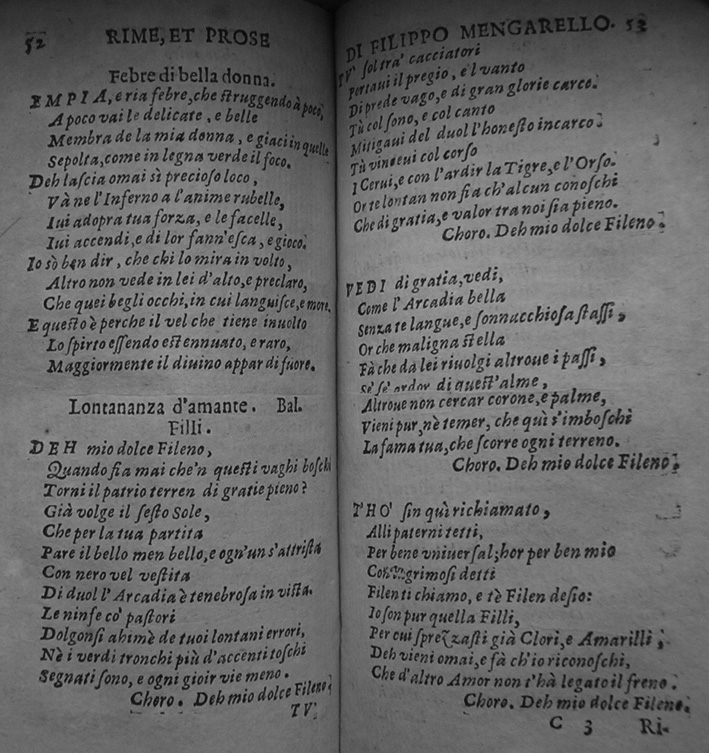 52 RIME, ET PROSE
Febre di bella donna.
EMPIA, e ria febre, che ſtruggendo à poco,
A poco vai le delicate, e belle
Membra de la mia donna, e giaci in quelle
Sepolta, come in legna verde il foco.
Deh laſcia omai sì precioſo loco,
Và ne l'Inferno a l'anime rubelle,
Iui adopra tua forza, e le facelle,
Iui accendi, e di lor fann'eſca, e gioco.
Io sò ben dir, che chi lo mira in volto,
Altro non vede in lei d'alto, e preclaro,
Che quei begli occhi, in cui languiſce, e more.
E queſto è perche il vel che tiene inuolto
Lo ſpirto eſſendo eſtennuato, e raro,
Maggiormente il diuino appar di fuore.
Lontananza d'amante. Bal.
Filli.
DEH mio dolce Fileno,
Quando fia mai che'n queſti vaghi boſchi
Torni il patrio terren di gratie pieno?
Già volge il ſeſto Sole,
Che per la tua partita
Pare il bello men bello, e ogn'un s'attriſta
Con nero vel veſtita
Di duol l'Arcadia è tenebroſa in viſta.
Le ninfe co' paſtori
Dolgonſi ahimè de tuoi lontani errori,
Nè i verdi tronchi più d'accenti toſchi
Segnati ſono, e ogni gioir vie meno.
Choro. Deh mio dolce Fileno.
TV'
DI FILIPPO MENGARELLO. 53
TV' ſol tra' cacciatori
Portaui il pregio, e'l vanto
Di prede vago, e di gran glorie carco.
Tù col ſono, e col canto
Mitigaui del duol l'honeſto incarco.
Tù vinceui col corſo
I Cerui, e con l'ardir la Tigre, e l'Orſo.
Or te lontan non fia ch'alcun conoſchi
Che di gratia, e valor tra noi ſia pieno.
Choro. Deh mio dolce Fileno.
VEDI di gratia, vedi,
Come l'Arcadia bella
Senza te langue, e ſonnacchioſa ſtaſſi,
Or che maligna ſtella
Fà che da lei riuolgi altroue i paſſi,
ardor di queſt'alme,
Altroue non cercar corone, e palme,
Vieni pur, nè temer, che quì s'imboſchi
La fama tua, che ſcorre ogni terreno.
Choro. Deh mio dolce Fileno.
T'HO' ſin quì richiamato,
Alli paterni tetti,
Per bene vniuerſal; hor per ben mio
detti
Filen ti chiamo, e tè Filen deſio:
Io ſon pur quella Filli,
Per cui ſprezzaſti già Clori, e Amarilli,
Deh vieni omai, e fà ch'io riconoſchi,
Che d'altro Amor non t'hà legato il freno.
Choro. Deh mio dolce Fileno.
C 3 Ri-